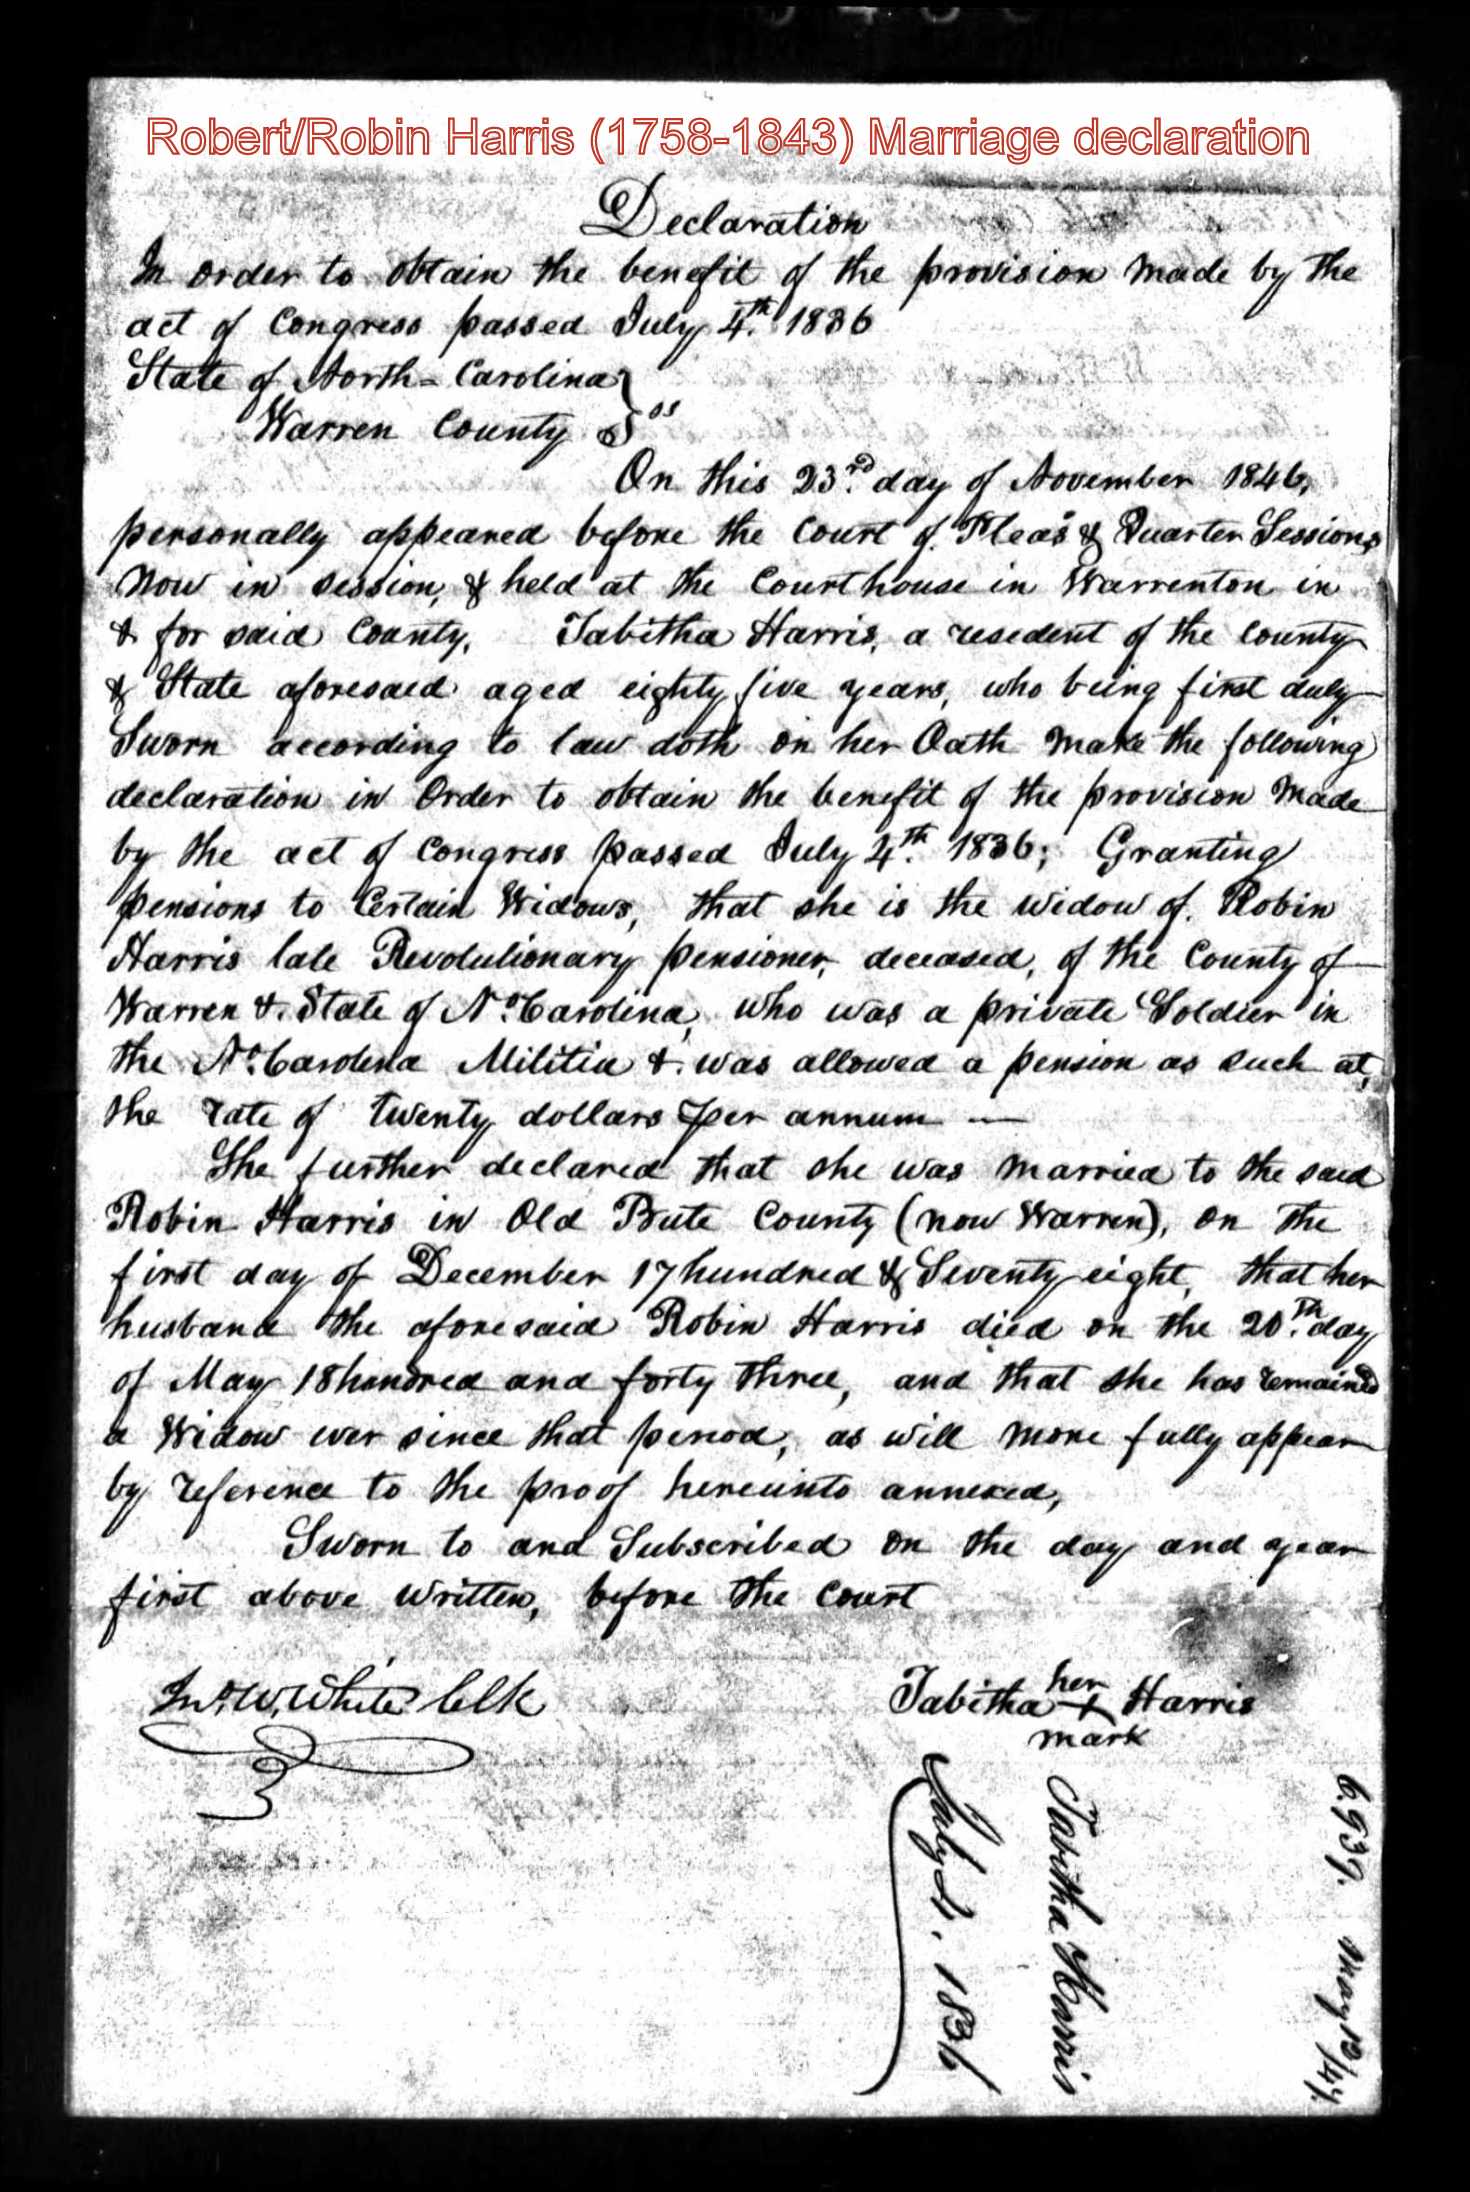 Robert/Robin Harris (1758-1843) Marriage declaration
Declaration
In order to obtain the benefit of the provision made by the
act of Congress passed July 4th. 1836
State of North-Carolina }
Warren County } ss
On this 23rd. day of November 1846,
personally appeared before the Court of Pleas & Quarter Sessions
now in session, & held at the Courthouse in Warrenton in
& for said County, Tabitha Harris, a resedent of the County
& State aforesaid aged eighty five years, who being first duly
Sworn according to law doth on her Oath make the following
declaration in Order to obtain the benefit of the provision made
by the act of Congress passed July 4th. 1836; Granting
pensions to Certain Widows, that she is the widow of Robin
Harris late Revolutionary pensioner, deceased, of the County of
Warren & State of No. Carolina, who was a private Soldier in
the No. Carolina Militia & was allowed a pension as such at,
the rate of twenty dollars per annum —
She further declared that she was married to the said
Robin Harris in Old Bute County (now Warren), on the
first day of December 17 hundred & Seventy eight, that her
husband the aforesaid Robin Harris died on the 20th. day
of May 18 hundred and forty three, and that she has remained
a Widow ever since that period, as will more fully appear
by reference to the proof hereunto annexed,
Sworn to and Subscribed on the day and year
first above written, before the Court
Jno. W. White Clk
her
Tabitha + Harris
mark
July 4, 1836
Tabitha Harris
May 13/47.